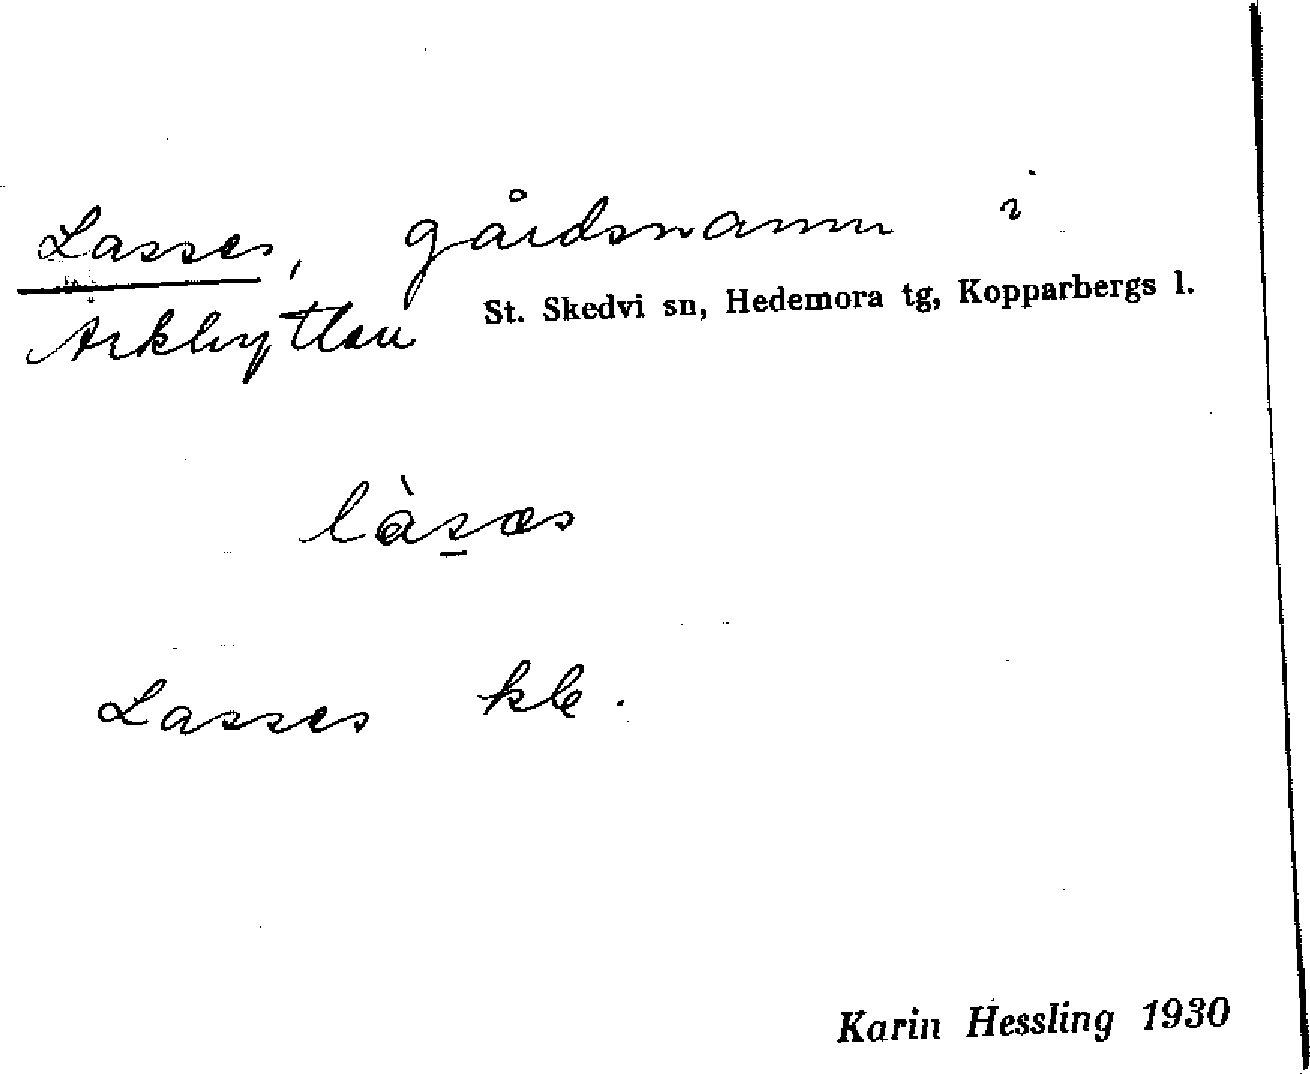 Lasses, gårdsnamn i
Arkhyttan St. Skedvi sn, Hedemora tg, Kopparbergs l.
làs̠æs
Lasses kk.
Karin Hessling 1930